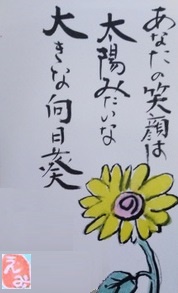 あなたの笑顔は
太陽みたいな
大きな向日葵
えみ